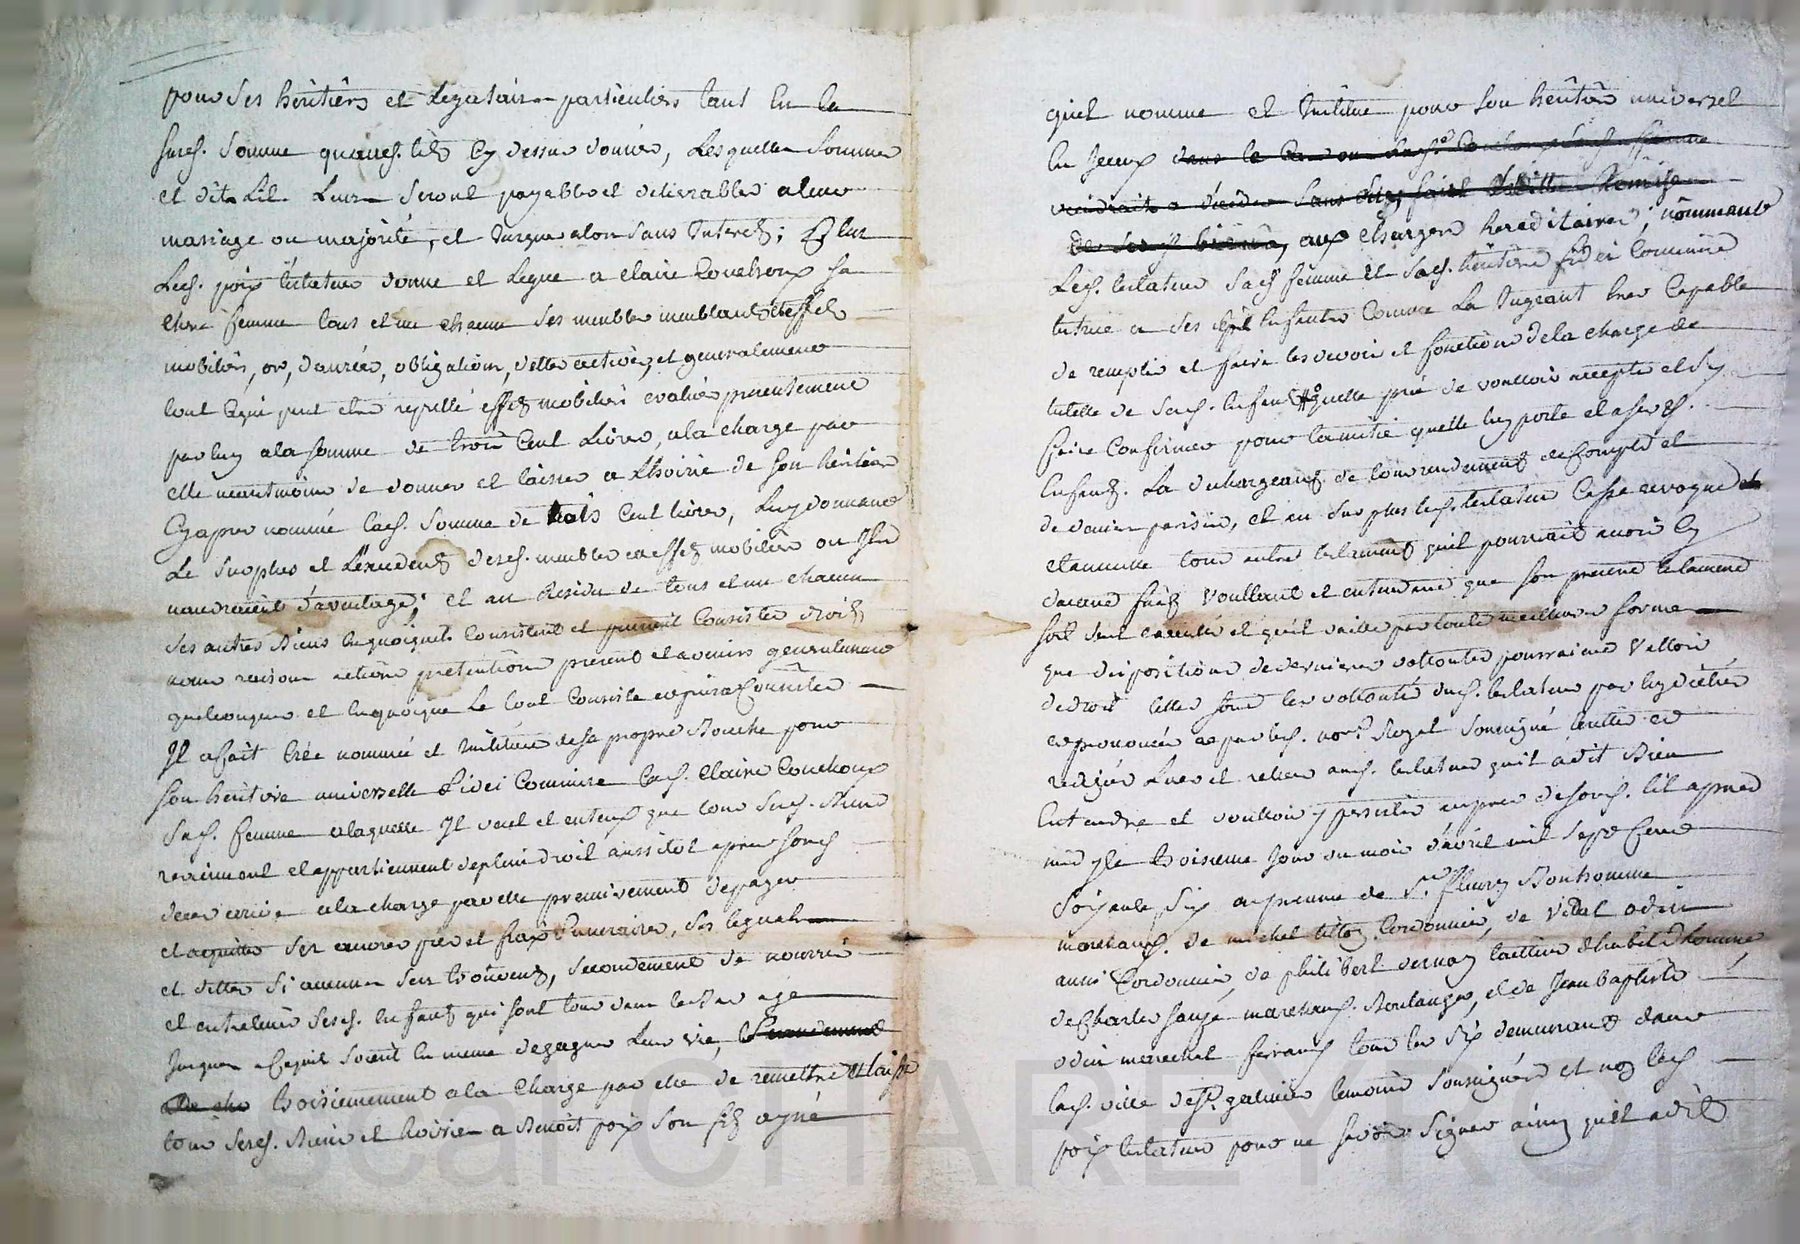 pour ses héritiers et Legatairs particuliers tant en la
susd. somme quaud. lit Cy dessus donnés, Lesquelles sommes
et dit Lit Leurs seront payables et delivrables a leur
mariage ou majorité, et Jusques alors sans Interets; Plus
Led. poix testateur donne et Legue a Claire Couchoux sa
chere femme tous et un chacun ses meubles meublants et effets
mobiliers, or, danrées, obligations, dettes actives, et generalement
tout Cequi peut etre reputté effets mobiliers evalués presentement
par luy a la somme de trois Cent Livres, a la charge par
elle neantmoins de donner et laisser a Lhoirie de son héritier
Cy apres nommé lad. somme de trois Cent livres, Luy donnant
Le surplus et Lexcedent desd. meubles et effets mobiliers ou Ils
vaudroient davantage; et au Residu de tous et un chacun
ses autres Biens enquoiquils Consistent et puissent Consister droits
noms raisons actions pretentions present et avenirs generalement
quelconques et enquoique Le tout Consiste et puisse Consister
Il a fait Créé nommé et Institué de sa propre Bouche pour
son heritiere universelle fidei Commise lad. Claire Couchoux
sad. femme a laquelle Il veut et entend que tous sesd. Biens
reviennent et appartiennent deplein droit aussitot apres sond
deces arrivé a la charge par elle premierement de payer
et acquitter ses œuvres pies et frais funeraires, ses legats
et dettes si aucunes sen trouvent, secondement de nourrir
et entretenir sesd. Enfants qui sont tous dans le Bas age
Jusques a Cequils soient en meme de gagner Leur vie,
troisiemement a la Charge par elle de remettre et laisser
tous sesd. Biens et hoiries a Benoit poix son fils ayné
quil nomme et Institue pour son héritier universel
en Iceux
aux charges hereditaires; nommant
Led. testateur sad femme et sad. héritiere fidei Commise
tutrice a ses Enfants Comme La Jugeant bien Capable
de remplir et faire les devoirs et fonctions de la charge de
tutelle de sesd. Enfants quelle prie de voulloir accepter et sy
faire Confirmer pour lamitié quelle luy porte et a ses d.
Enfants. La dechargeant de tous rendement de Compte et
de denier parisien, et au surplus led. testateur Casse revoque
et annulle tous autres testaments quil pourroit avoir Cy
devant faits voullant et entendant que son present testament
soit seul executé et quil vaille par toute meilleure forme
que dispositions de dernieres vollontés pourraient Valloir
de droit telles sont les vollontés dud. testateur par luy dictées
et prononcées et par led. nore. Royal sousigné ecrittes et
redigées Lues et relues aud. testateur quil a dit Bien
Entendre et voulloir y persister au pres de sond. lit apres
midy le troisieme Jour du mois davril mil sept Cent
soixante six en presence de Sr. fleury Bonhomme
marchand, de michel Cordonnier, de Vital odin
aussi Cordonnier, de philibert vernay tailleur dhabit dhommes,
de Charles sauze marchand Boulanger, et de Jean baptiste
odin marechal ferrand tous les six demeurants dans
lad. ville de St. galmier temoins sousignés et non led
poix testateur pour ne scavoir signer ainsy quil a dit